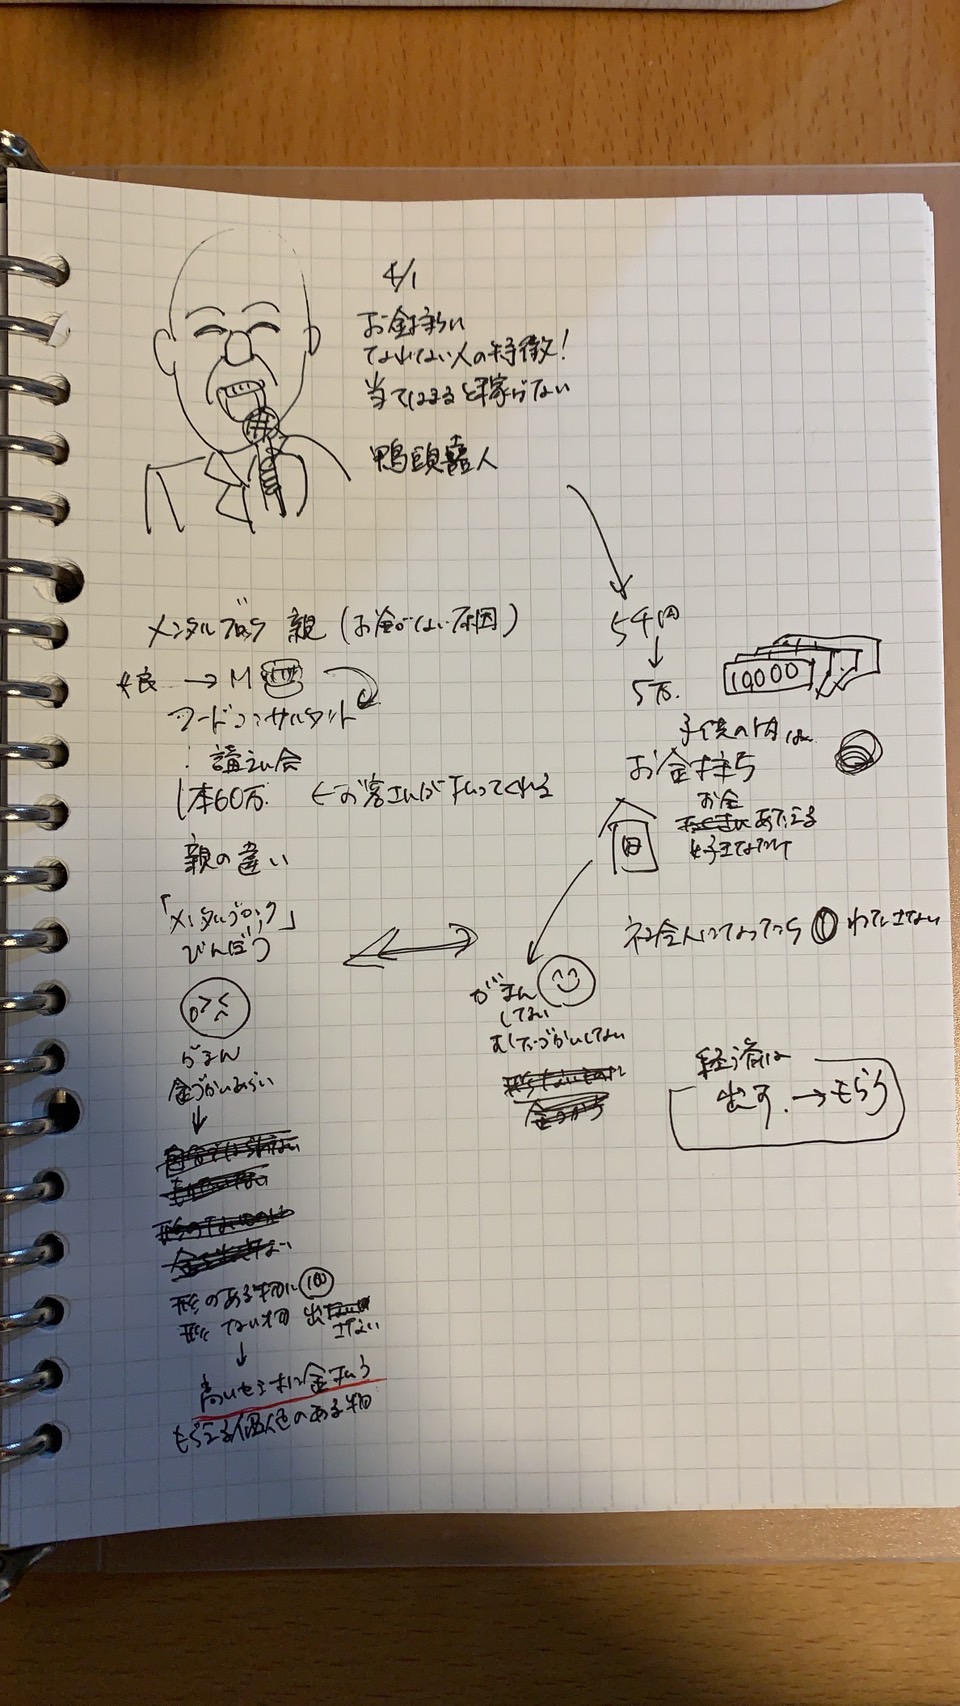 4/1
お金持ちに
なれない人の特徴!
当てはまると稼げない
鴨頭嘉人
メンタルブロック 親 (お金がない原因)
5千円
5万
10000
→M
フードコンサルタント
講演会
1本60万. ←お客さんが払ってくれる
子供の内は
お金持ち
お金
あたえる
好きなだけ
親の違い
「メンタルブロック」
びんぼう
社会人になったら わたさない
がまん
してない
むだづかいしてない
がまん
金づかいあらい
経済は
出す.→もらう
形のある物に 100
形でない物 出
さない
高いセミナーに金払う
もらえる価値のある物